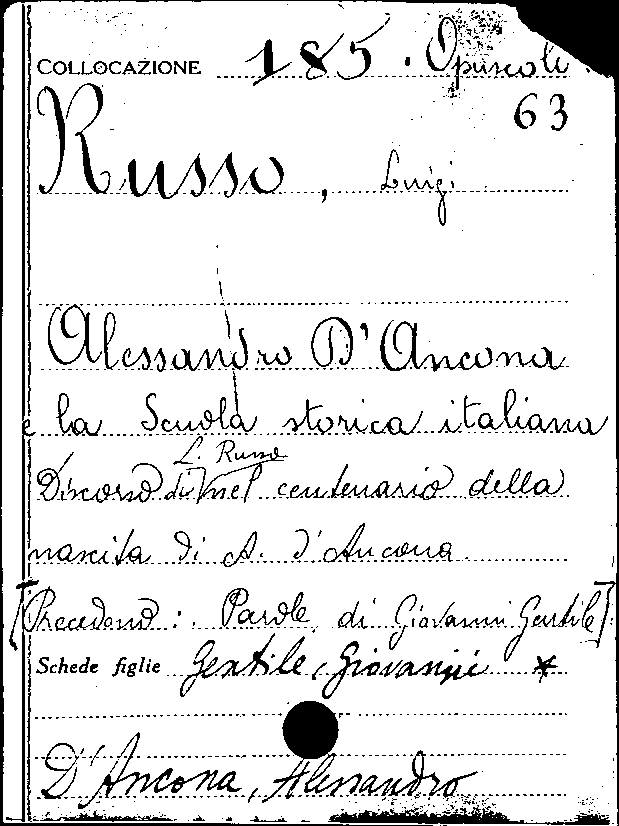 COLLOCAZIONE 185. Opuscoli
63
Russo, Luigi
Alessandro D'Ancona
e la Scuola storica italiana
L. Russo
Discorso di nel centenario della
nascita di A. d'Ancona.
[Precedono: Parole di Giovanni Gentile].
Schede figlie Gentile, Giovanni *
D'Ancona, Alessandro